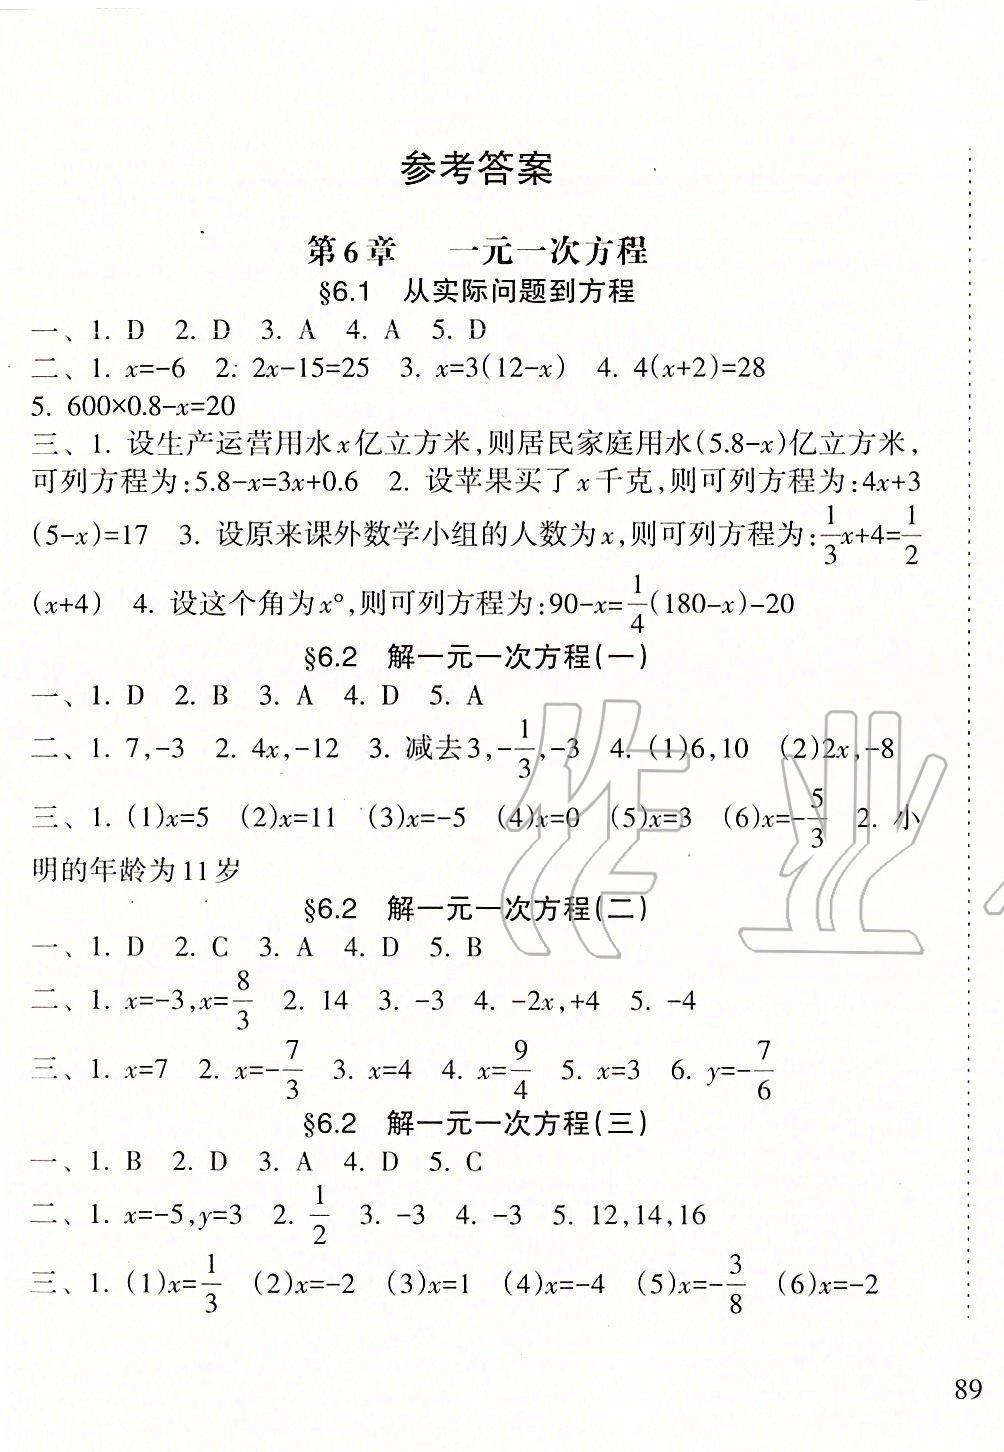 参考答案
第6章 一元一次方程
§6.1 从实际问题到方程
一、1. D 2. D 3. A 4. A 5. D
二、1. x=-6 2. 2x-15=25 3. x=3(12-x) 4. 4(x+2)=28
5. 600×0.8-x=20
三、1. 设生产运营用水x亿立方米,则居民家庭用水(5.8-x)亿立方米,
可列方程为:5.8-x=3x+0.6 2. 设苹果买了x千克,则可列方程为:4x+3
(5-x)=17 3. 设原来课外数学小组的人数为x,则可列方程为:1/3x+4=1/2
(x+4) 4. 设这个角为x°,则可列方程为:90-x=1/4(180-x)-20
§6.2 解一元一次方程(一)
一、1. D 2. B 3. A 4. D 5. A
二、1. 7,-3 2. 4x,-12 3. 减去3,-1/3,-3 4. (1)6,10 (2)2x,-8
三、1. (1)x=5 (2)x=11 (3)x=-5 (4)x=0 (5)x=3 (6)x=-5/3 2. 小
明的年龄为11岁
§6.2 解一元一次方程(二)
一、1. D 2. C 3. A 4. D 5. B
二、1. x=-3,x=8/3 2. 14 3. -3 4. -2x,+4 5. -4
三、1. x=7 2. x=-7/3 3. x=4 4. x=9/4 5. x=3 6. y=-7/6
§6.2 解一元一次方程(三)
一、1. B 2. D 3. A 4. D 5. C
二、1. x=-5,y=3 2. 1/2 3. -3 4. -3 5. 12,14,16
三、1. (1)x=1/3 (2)x=-2 (3)x=1 (4)x=-4 (5)x=-3/8 (6)x=-2
89
作业